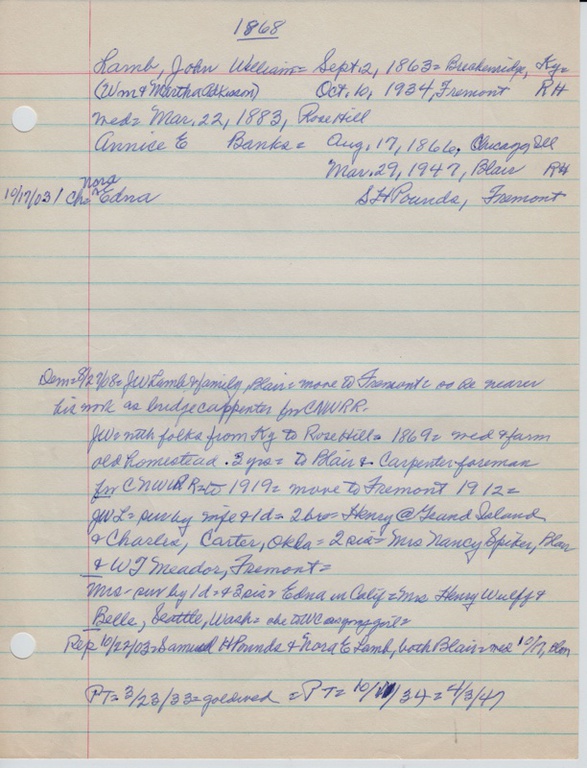 1868
Lamb, John William = Sept. 12, 1863 = Breckenridge, Ky =
(Wm & Martha Atkisson) Oct. 10, 1934, Fremont RH
wed = Mar. 22, 1883, Rose Hill
Annise E Banks = Aug. 17, 1866, Chicago, Ill
Mar. 29, 1947, Blair RH
Nora
10/17/03 / Ch = Edna S H Pounds, Fremont
Dem = 8/27/08 = JW Lamb & family, Blair = move to Fremont = so be nearer
his work as bridge carpenter for CNWRR -
JW = with folks from Ky to Rose Hill = 1869 = wed & farm
old homestead 3 yrs = to Blair & Carpenter foreman
for CNWRR = to 1919 = move to Fremont 1912 =
JWL = surv by wife & 1 d = 2 bro = Henry @ Grand Island
& Charles, Carter, Okla = 2 sis = Mrs Nancy Spiker, Blair
& WT Meador, Fremont =
Mrs - surv by 1 d = & 3 sis = Edna in Calif = Mrs Henry Wulff &
Belle, Seattle, Wash = she to WC as young girl =
Rep 10/22/03 = Samuel H Pounds & Nora E Lamb, both Blair = wed 10/17,
PT = 3/23/33 = gold wed = PT = 10/11/34 = 4/3/47